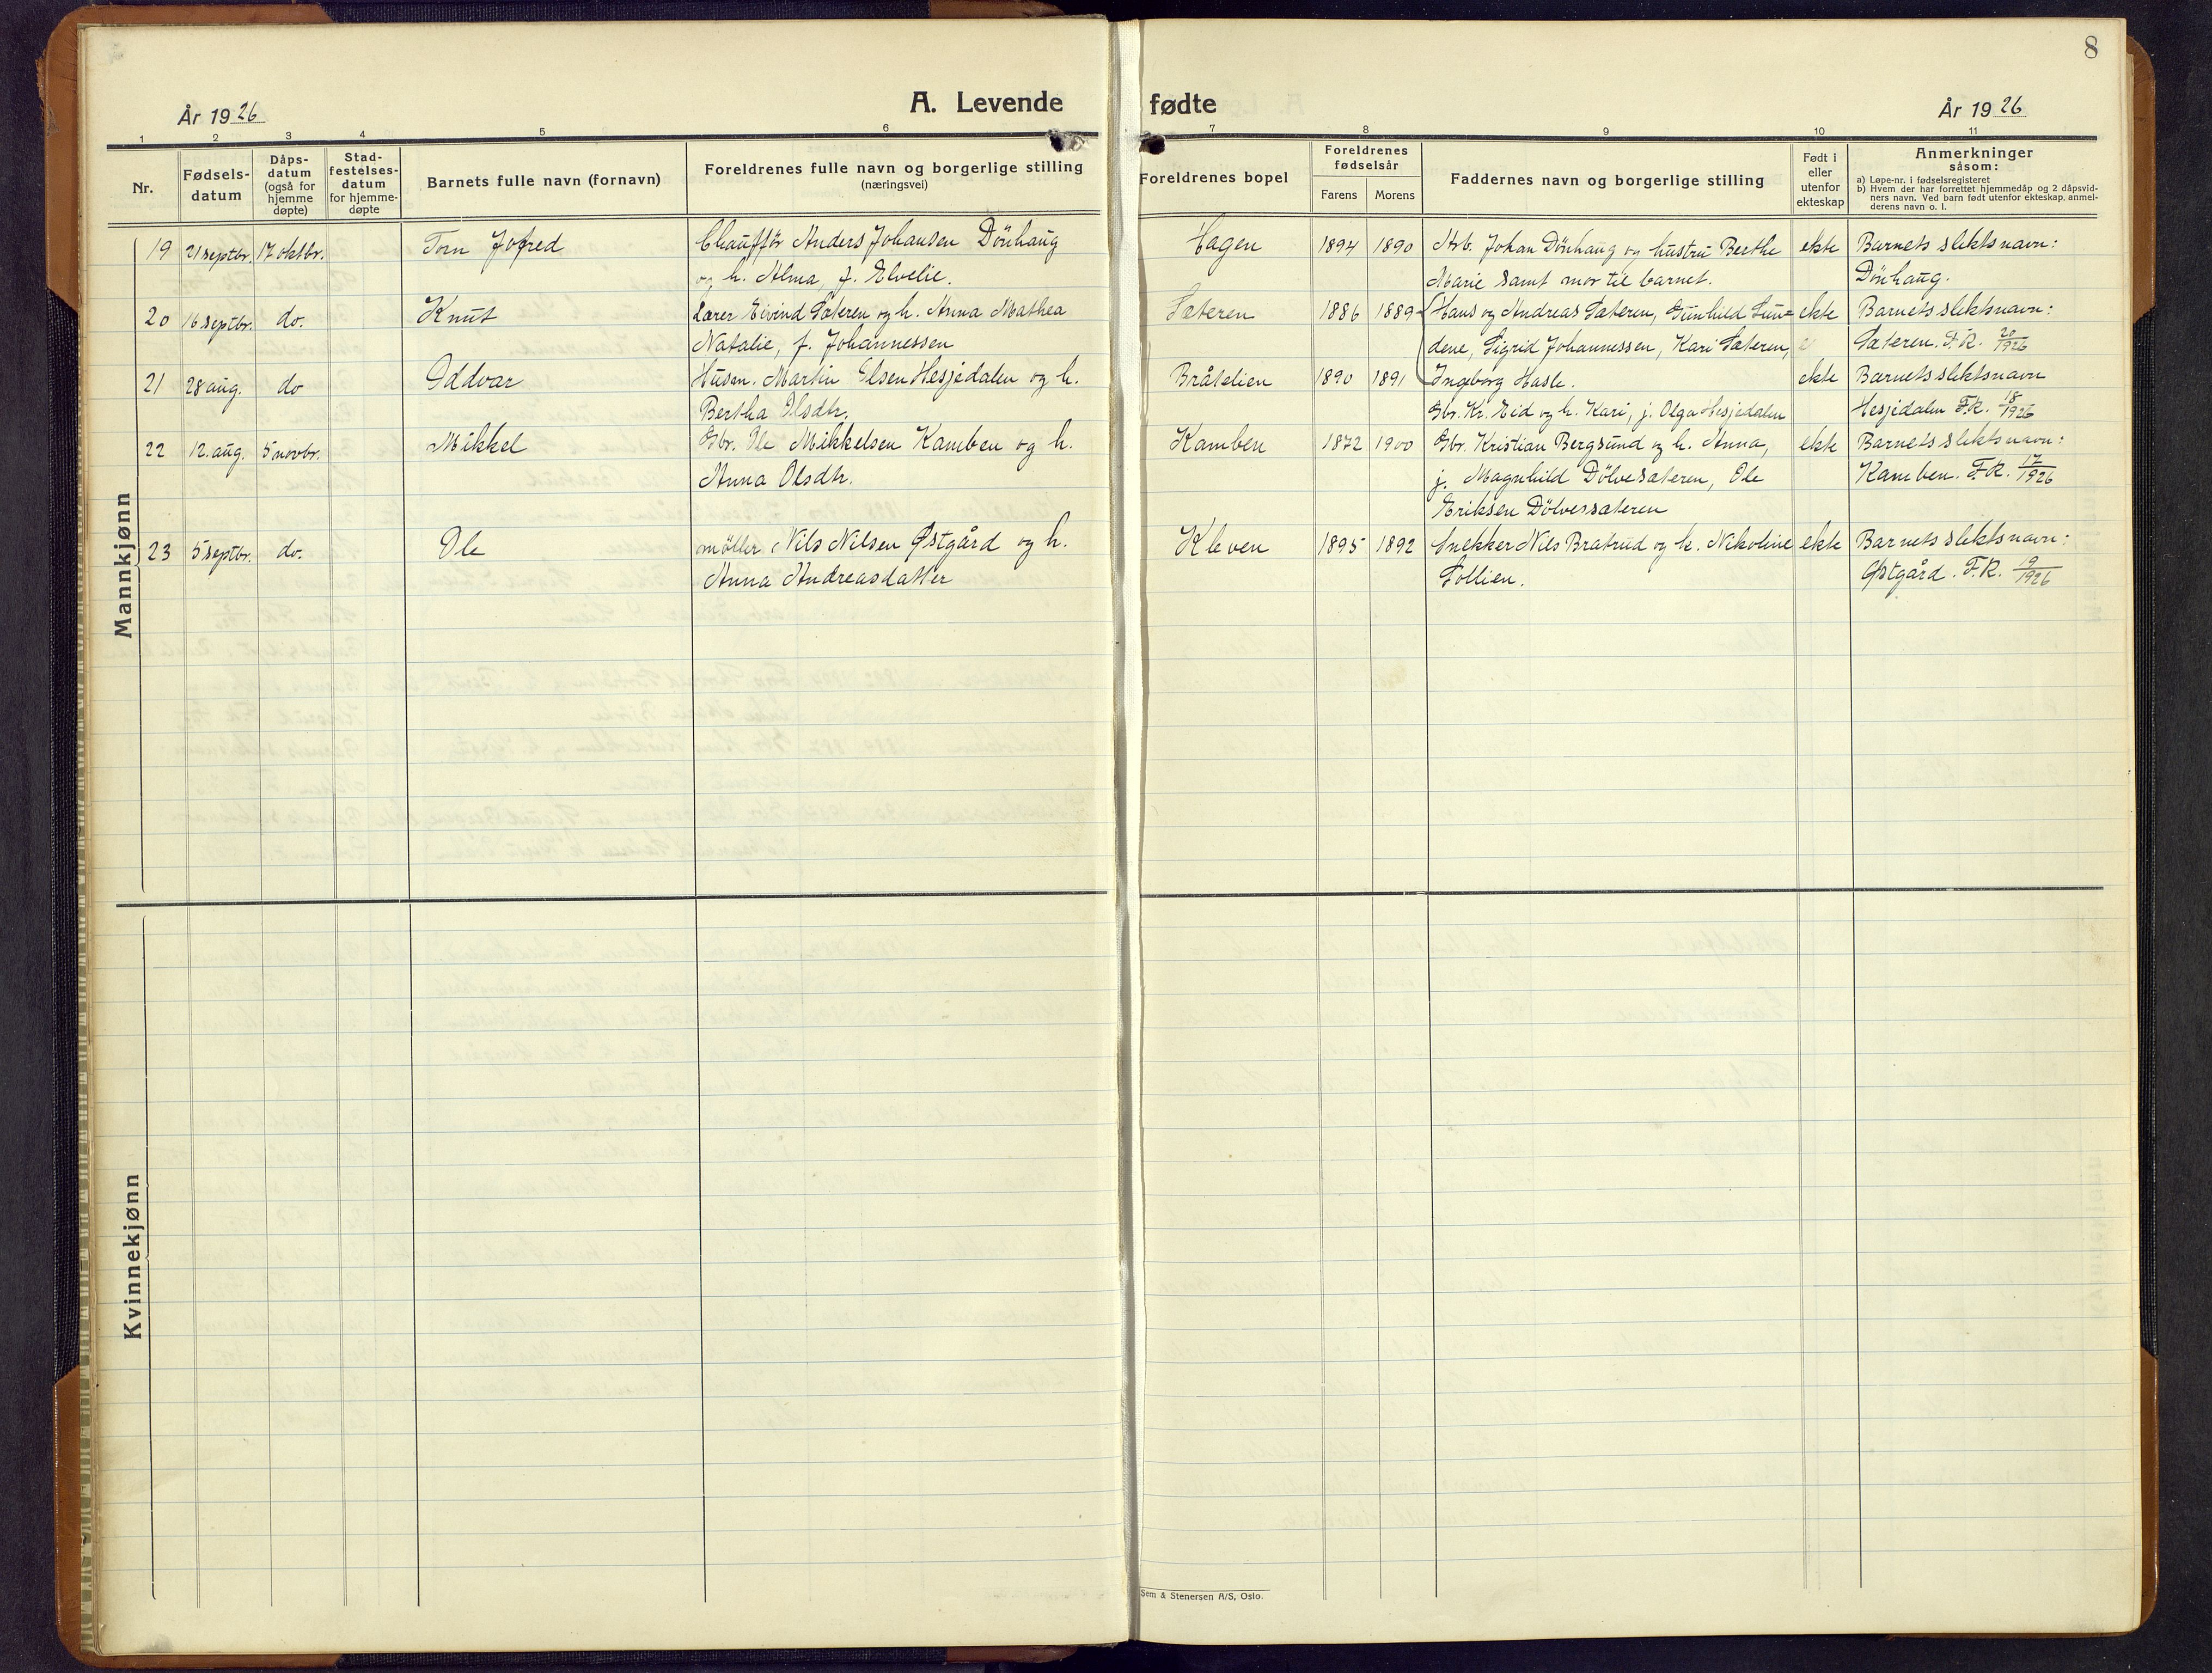 8
År 1926
A. Levende
fødte
År 1926
1 2 3 4 5 6 7 8 9 10 11
Nr.
Fødsels-
datum
Dåps-
datum
(også for
hjemme
døpte)
Stad-
festelses-
datum
for hjemme-
døpte
Barnets fulle navn (fornavn)
Foreldrenes fulle navn og borgerlige stilling
(næringsvei)
Foreldrenes bopel
Foreldrenes
fødselsår
Farens Morens
Faddernes navn og borgerlige stilling
Født i
eller
utenfor
ekteskap
Anmerkninger
såsom:
a) Løpe-nr. i fødselsregisteret
b) Hvem der har forrettet hjemmedåp og 2 dåpsvid-
ners navn. Ved barn født utenfor ekteskap, anmel-
derens navn o. l.
Mannkjønn
19 21 septbr. 17 oktbr. Torn Jofred Chauffør Anders Johansen Dønhaug Hagen 1894 1890 Arb. Johan Dønhaug og hustru Berthe ekte Barnets slektsnavn:
og h. Alma, f. Elvelie. Marie samt mor til barnet. Dønhaug.
20 16 septbr. do. Knut Lærer Eivind Sæteren og h. Anna Mathea Sæteren 1886 1889 Hans og Andreas Sæteren, Gunhild Lun= ekte Barnets slektsnavn:
Natalie, f. Johannessen dene, Sigrid Johannessen, Kari Sæteren, Sæteren. F.R. 20/1926
21 28 aug. do Oddvar Husm. Martin Olsen Hesjedalen og h. Bråtelien 1890 1891 Ingeborg Hasle. ekte Barnets slektsnavn
Bertha Olsdtr. Gbr. Kr. Eid og h. Kari, j. Olga Hesjedalen Hesjedalen F.R. 18/1926
22 12. aug. 5 novbr. Mikkel Gbr. Ole Mikkelsen Kamben og h. Kamben 1872 1900 Gbr. Kristian Bergsund og h. Anna, ekte Barnets slektsnavn:
Anna Olsdtr. j. Magnhild Dölvesæteren, Ole Kamben. F.R. 17/1926
Eriksen Dölvessæteren
23 5 septbr. do. Ole møller Nils Nilsen Østgård og h. Kleven 1895 1892 Snekker Nils Bratrud og h. Nikoline ekte Barnets slektsnavn:
Anna Andreasdatter Sollien. Østgård. F.R. 19/1926
Kvinnekjønn
Sem & Stenersen A/S, Oslo.